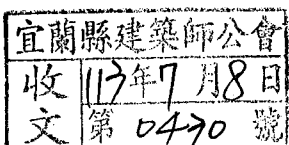 宜蘭縣建築師公會
收文
113年7月8日
第0430號